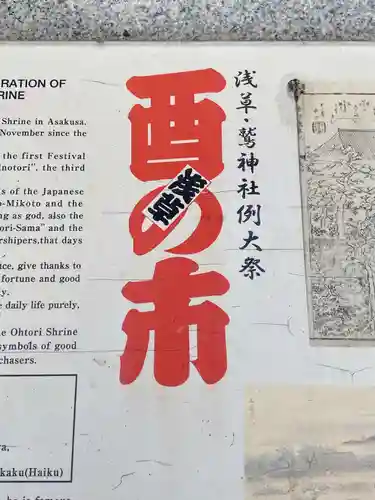 RATION OF
RINE
Shrine in Asakusa.
November since the
the first Festival
Inotori", the third
s of the Japanese
o-Mikoto and the
ng as god, also the
ori-Sama" and the
rshipers,that days
ce, give thanks to
fortune and good
ly.
e daily life purely,
e Ohtori Shrine
symbols of good
chasers.
a,
kaku(Haiku)
he is famous
酉の市
浅草
浅草・鷲神社例大祭